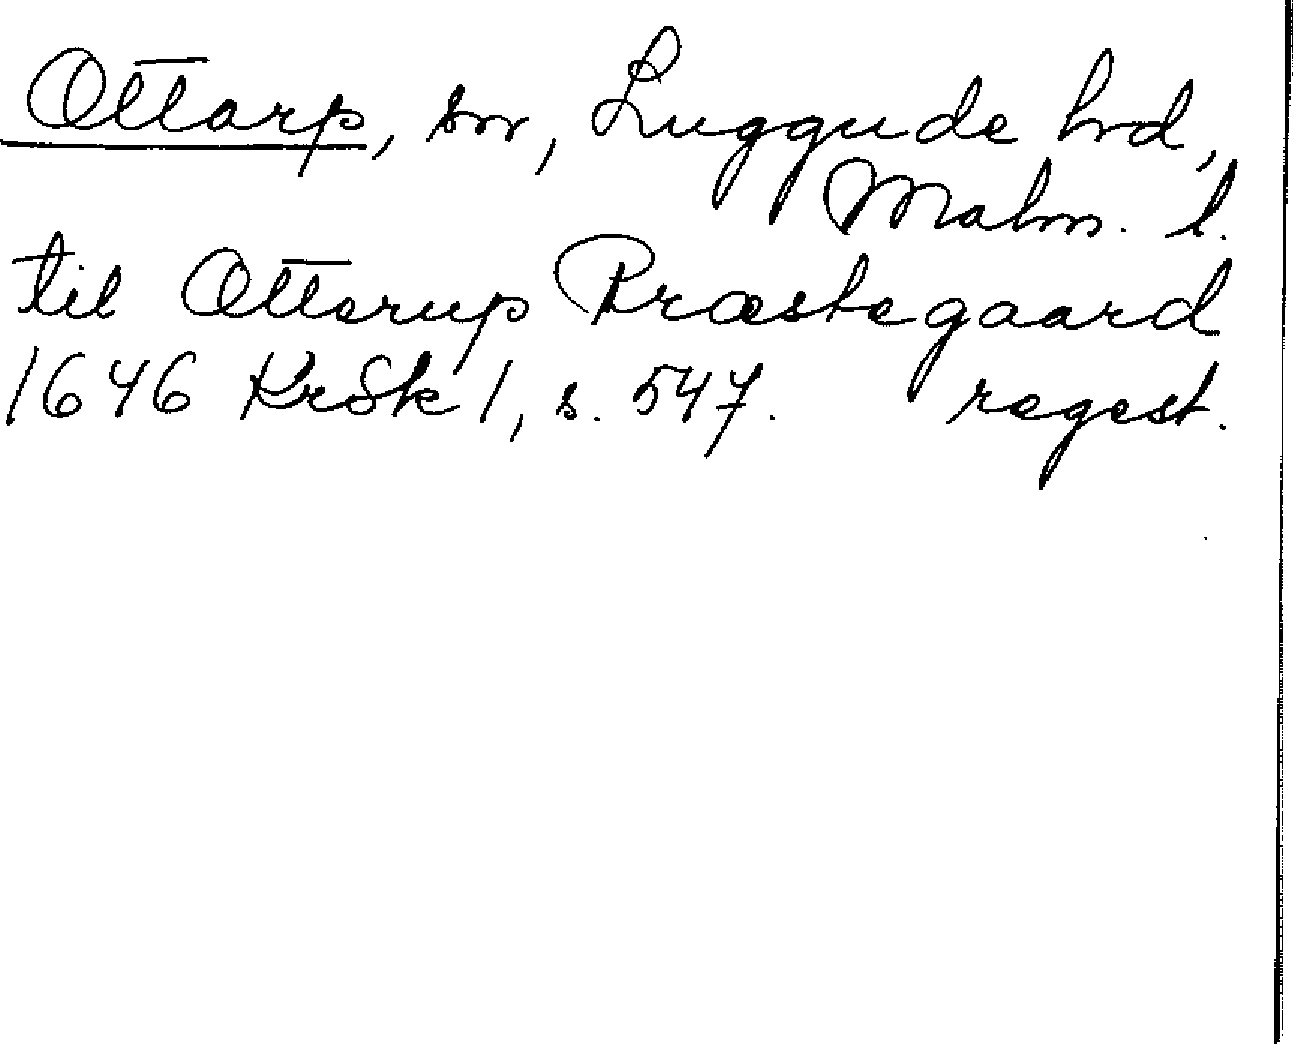 Ottarp, sn, Luggude hrd,
Malm. l.
til Otterup Præstegaard
1646 KrSk 1, s. 547. regest.